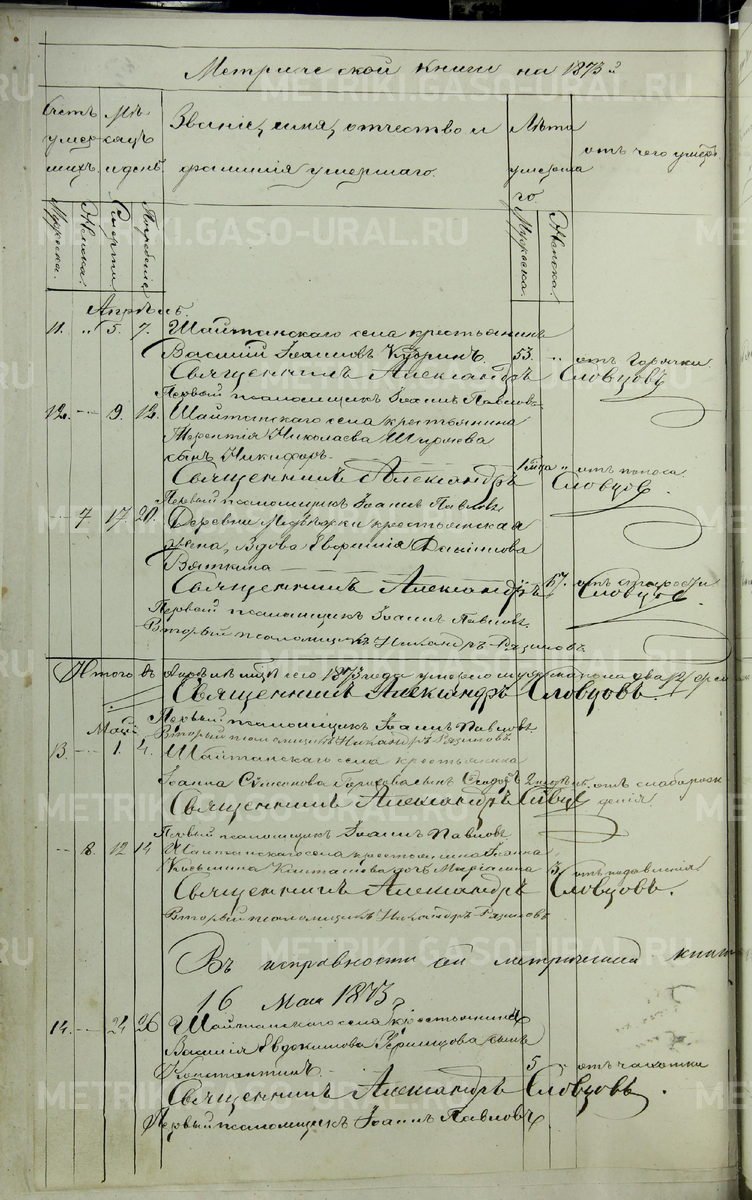 Метрической книги на 1873 г.
Счетъ умершихъ.
Мѣсяцъ и день.
Званіе, имя, отчество и
фамилія умершаго.
Лѣта умершаго.
отъ чего умеръ
Мужеска. Женска. Смерти. Погребенія Мужеска. Женска.
Апрѣль.
11. „ 5. 7. Шайтанскаго села крестьянинъ
Василій Іоанновъ Кузринъ. 53. „ отъ горячки
Священникъ Александръ Словцовъ
Первый псаломщикъ Іоаннъ Павловъ
12. -- 9. 12. Шайтанскаго села крестьянина
Терентія Николаева Ширяева
сынъ Никифоръ 1 мѣца „ отъ поноса
Священникъ Александръ Словцовъ.
Первый псаломщикъ Іоаннъ Павловъ
-- 7 17. 20. Деревни крестьянская
жена, вдова Евфимія
Вяткина 67. отъ старости
Священникъ Александръ Словцовъ.
Первый псаломщикъ Іоаннъ Павловъ.
Второй псаломщикъ Никандръ
Итого въ Апрѣлѣ мцѣ сего 1873 года умерло мужеска пола два /2/
Священникъ Александръ Словцовъ.
Первый псаломщикъ Іоаннъ Павловъ
Второй псаломщикъ Никандръ
Май
13. -- 1. 4. Шайтанскаго села крестьянина
Іоанна Сѵмеонова сынъ 2 недѣль отъ слаборож
денія.
Священникъ Александръ Словцовъ
Первый псаломщикъ Іоаннъ Павловъ
-- 8. 12 14 Шайтанскаго села крестьянина Іоанна
Косьмина дочь 3. отъ подавленія
Священникъ Александръ Словцовъ.
Второй псаломщикъ Никандръ
Въ исправности сей метрической книги
16 Мая 1873 г.
14. -- 24 26 Шайтанскаго села крестьянина
Василія Евдокимова сынъ
Константинъ 5 „ отъ чахотки
Священникъ Александръ Словцовъ.
Первый псаломщикъ Іоаннъ Павловъ
METRIKI.GASO-URAL.RU